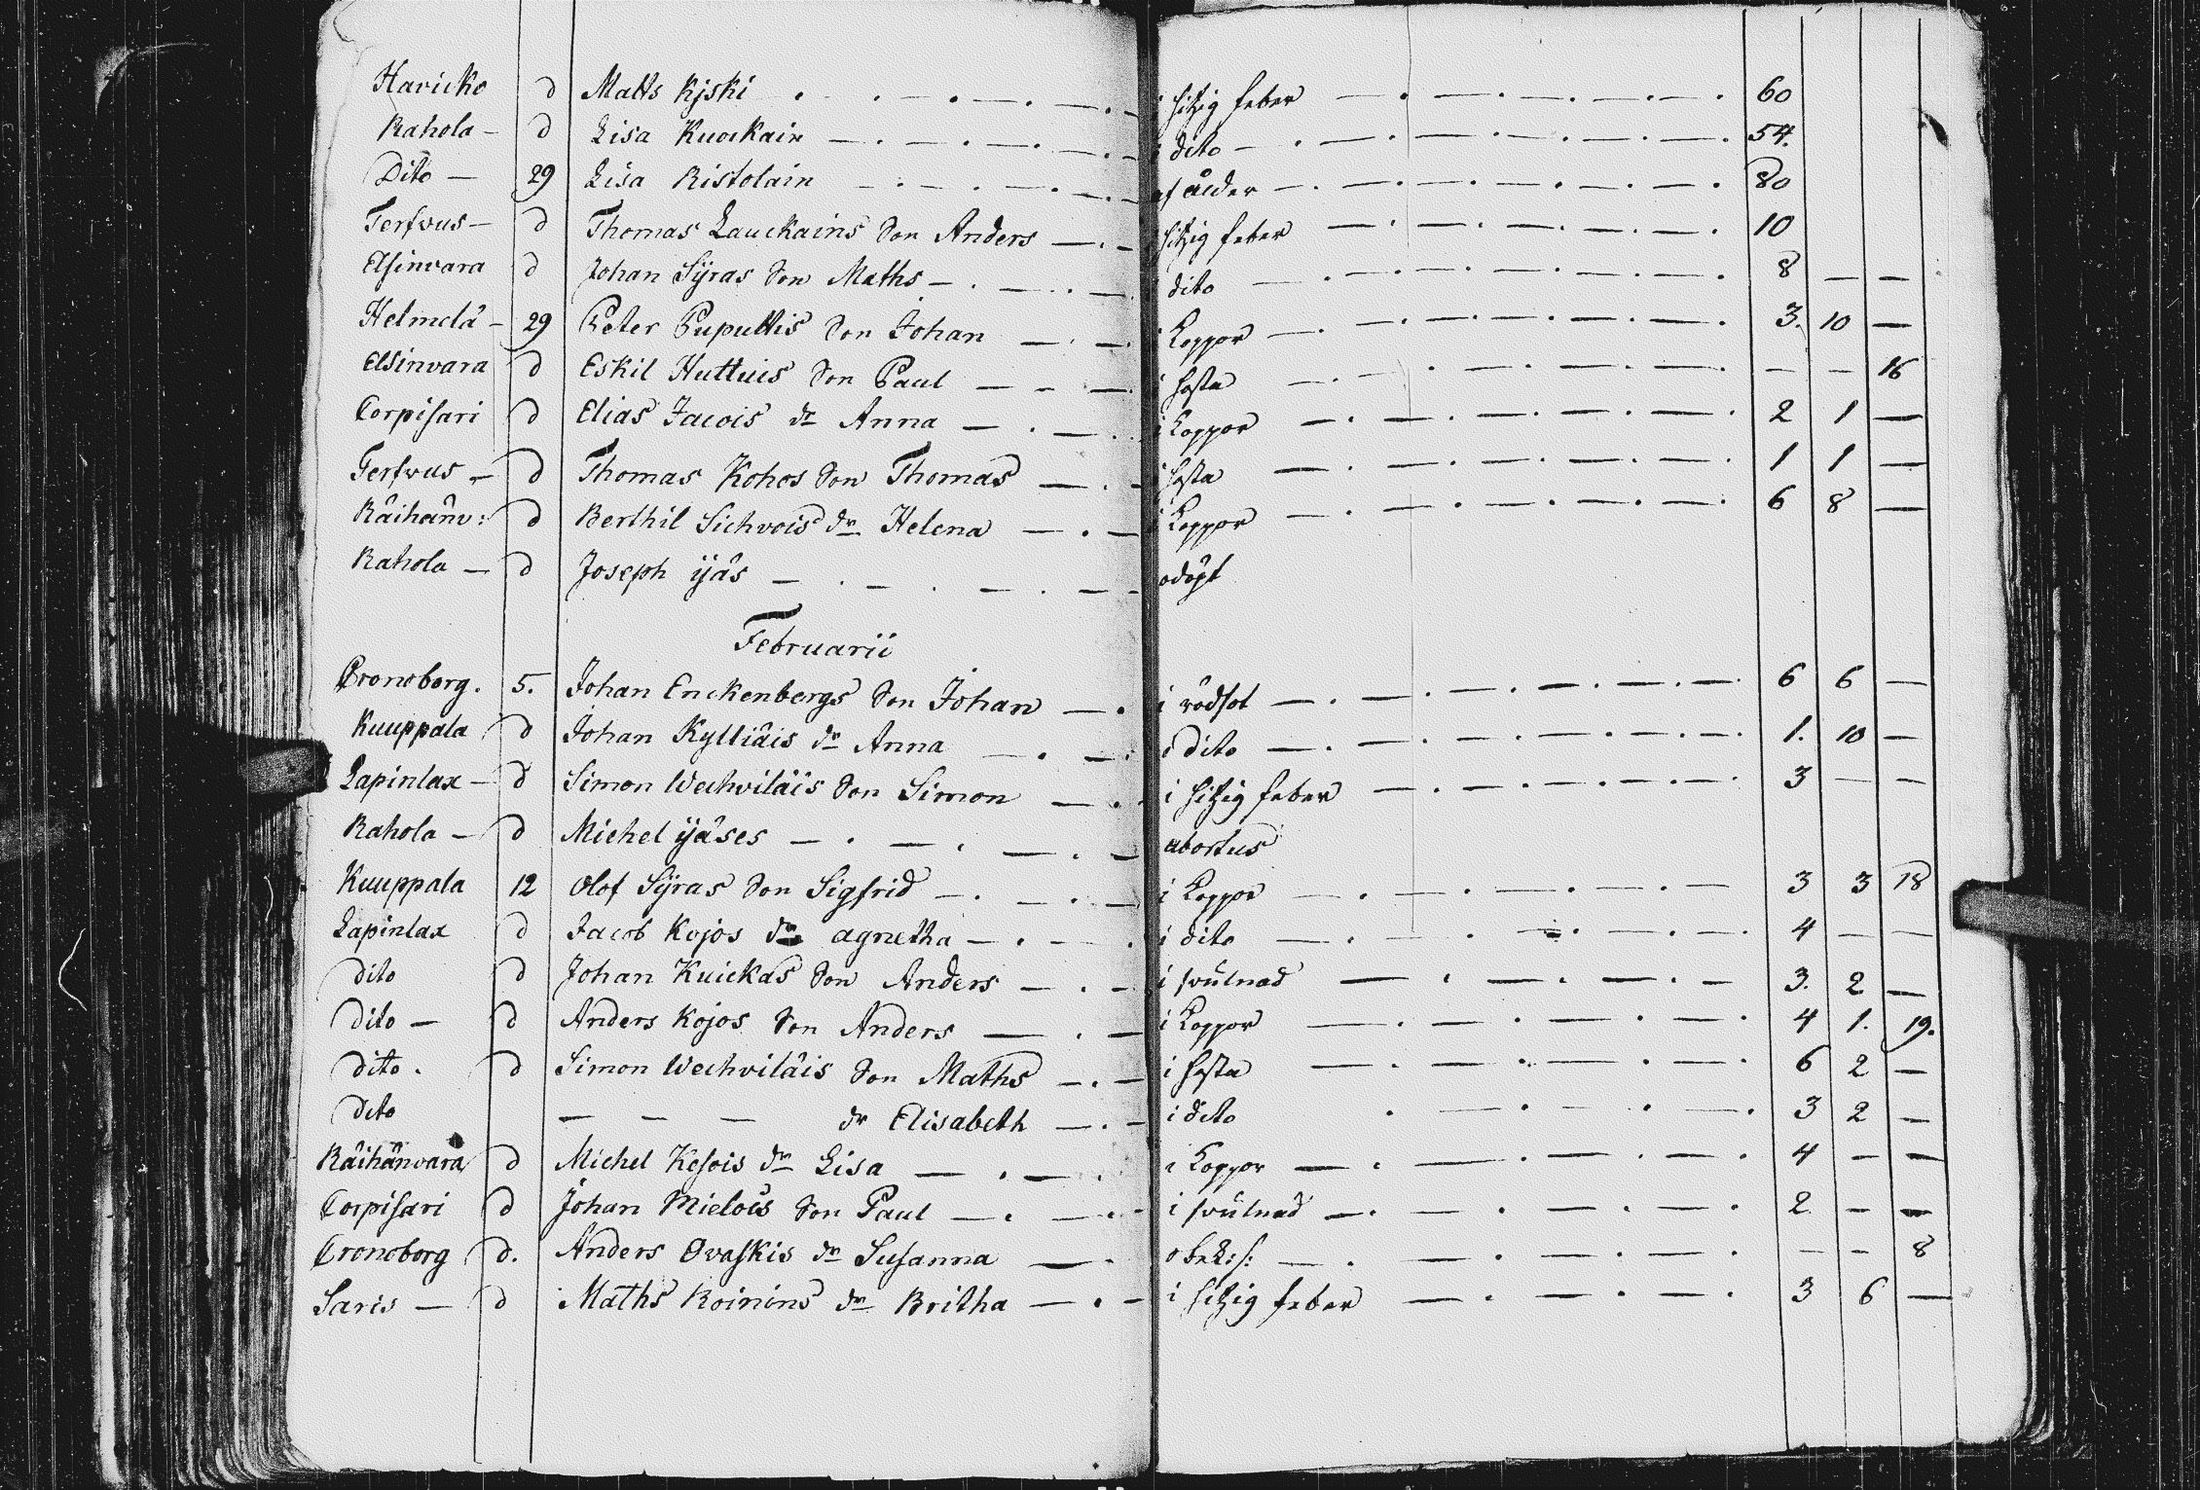 Haricko d Matts Kjski i hitzig feber 60
Rahola - d Lisa Kuockain i dito 54.
Dito - 29 Lisa Ristolain af ålder 80
Terfvus - d Thomas Lauckains Son Anders hitzig feber 10
Elsinvara d Johan Sÿras Son Maths i dito 8 — —
Helmelä - 29 Peter Puputtis Son Johan i Koppor 3. 10 —
Elsinvara d Eskil Huttuis Son Paul i hosta — — 16
Corpisari d Elias Jacois dr Anna i Koppor 2 1 —
Terfvus - d Thomas Kohos Son Thomas i hosta 1 1 —
Räihänv: d Berthil Sichvois dr Helena i Koppor 6 8 —
Rahola - d Joseph ÿäs odöpt
Februarii
Cronoborg. 5. Johan Enckenbergs Son Johan i rödsot 6 6 —
Kuuppala d Johan Kylliäis dr Anna i dito 1. 10 —
Lapinlax - d Simon Wechviläis Son Simon i hitzig feber 3 — —
Rahola - d Michel ÿäses abortus
Kuuppala 12 Olof Sÿras Son Sigfrid i Koppor 3 3 18
Lapinlax d Jacob Kojos dr agnetha i dito 4 — —
dito d Johan Kuickas Son Anders i svulnad 3. 2 —
dito - d Anders Kojos Son Anders i Koppor 4 1. 19.
dito. d Simon Wechviläis Son Maths i hosta 6 2 —
dito — — — dr Elisabeth i dito 3 2 —
Räihänvara d Michel Kesois dr Lisa i Koppor 4 — —
Corpisari d Johan Mielois Son Paul i svulnad 2 — —
Cronoborg d. Anders Ovaskis dr Susanna obek:s: — — 8
Saris - d Maths Roinins dr Britha i hitzig feber 3 6 —